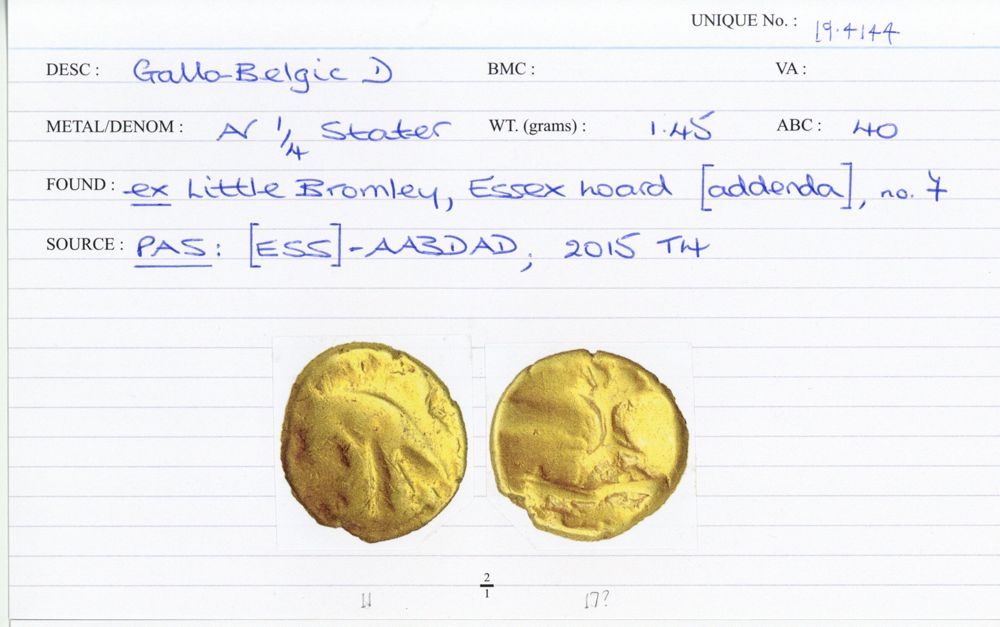 UNIQUE No. : 19.4144
DESC : Gallo-Belgic D BMC : VA :
METAL/DENOM : AV 1/4 Stater WT. (grams) : 1.45 ABC : 40
FOUND : ex Little Bromley, Essex hoard [addenda], no. 7
SOURCE : PAS: [ESS]-AA3DAD; 2015 T4
2/1
11 17?